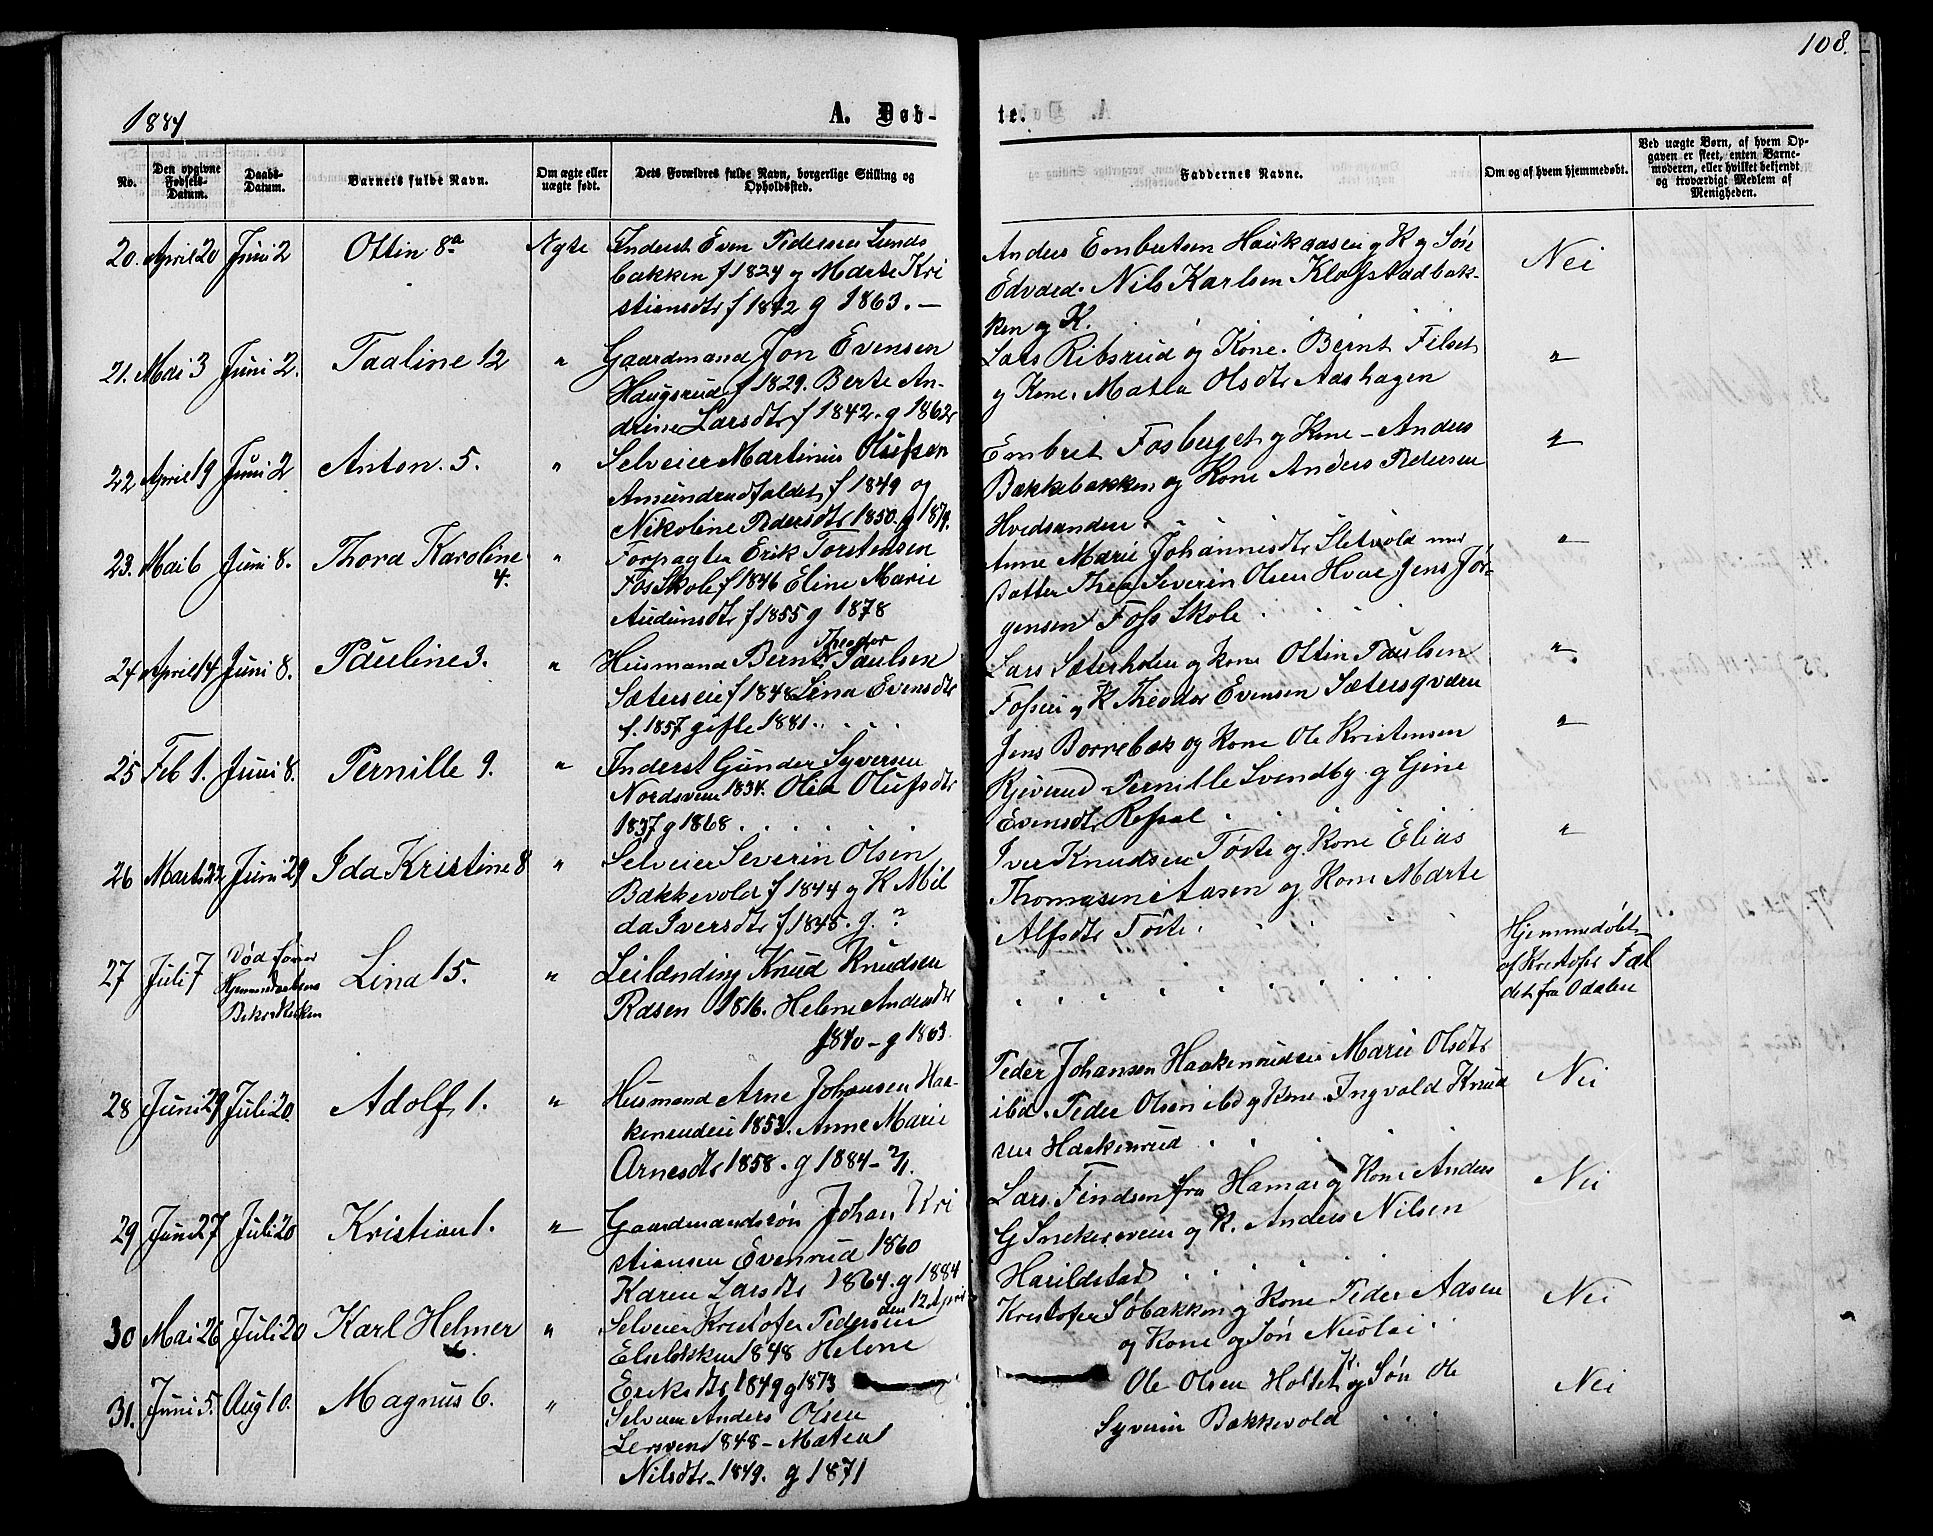 108.
1884
A. Døb-
te.
No.
Den opgivne Fødsels-Datum.
Daabs-Datum.
Barnets fulde Navn.
Om ægte eller uægte født.
Dets Forældres fulde Navn, borgerlige Stilling og Opholdssted.
Faddernes Navne.
Om og af hvem hjemmedøbt.
Ved uægte Børn, af hvem Opgaven er skeet, enten Barnemoderen, eller hvilket bekjendt og troværdigt Medlem af Menigheden.
20. April 20 Juni 2 Ottin 8a Ægte Inderst Even Pedersen Lunds
bakken f 1824 og Marte Kri
stiansdtr f 1842 g 1863. —
Anders Embretsen Haukaasen g K og Søn
Edvard. Nils Karlsen Klofstadbak-
ken og K.
Nei
21. Mai 3 Juni 2. Taaline 12 " Gaardmand Jon Evensen
Haugsrud f 1829. Berte An-
drine Larsdtr f 1842. g 1862
Lars Ribsrud og Kone. Bernt Filset
g Kone. Matea Olsdtr Aashagen
"
22 April 19 Juni 2 Anton. 5. " Selveier Martinius Olufsen
Amundrudfaldet f 1849 og
Nikoline Pedersdtr 1850. g 1874.
Embret Fosberget og Kone - Anders
Bækkebakken og Kone Anders Pedersen
Hvidsanden.
"
23. Mai 6 Juni 8. Thora Karoline 4. " Forpagter Erik Torstensen
Fos Skole f 1846 Eline Marie
Audunsdtr f 1855 g 1878
Anne Marie Johannesdtr Sletvold med
Datter Thea Severin Olsen Hvae Jens Jør-
gensen Foss Skole
"
24 April 14 Juni 8. Pauline 3. " Husmand Bernt Theodor Paulsen
Sæterseie f 1848 Lina Evensdtr
f. 1857 gifte 1881.
Lars Sæterholen og Kone Ottin Paulsen
Fossen g K Theodor Evensen Sætersqværn
"
25 Feb 1. Juni 8. Pernille 9. " Inderst Gunder Syversen
Nordsveen 1834. Olea Olufsdtr
1837 g 1868
Jens Borrebæk og Kone Ole Kristensen
Kjverud Pernille Svendby g Gine
Evensdtr Refsal
"
26 Marts 22 Juni 29 Ida Kristine 8 " Selveier Severin Olsen
Bakkevolde f 1844 g K Mil
da Iversdtr f 1845. g. ?
Iver Knudsen Tøste og Kone Elias
Thomasen Aasen og Kone Marte
Alfsdtr Tøste
"
27 Juli 7 Død før Hjemmedaabens Bekræftelsen Lina 15. " Leilænding Knud Knudsen
Rasen 1816. Helene Andersdtr
f 1840 - g 1863.
Hjemmedøbt
af Kristofer Fæl
det fra Odalen
28 Juni 29 Juli 20. Adolf 1. " Husmand Arne Johansen Haa-
kenrudeie 1853. Anne Marie
Arnesdtr 1858. g 1884 - 2/1.
Peder Johansen Haakenrudeie Marie Olsdtr
ibid. Peder Olsen ibd g Kone. Ingvald Knud
sen Haakenrud
Nei
29 Juni 27 Juli 20 Kristian 1. " Gaardmandssøn Johan Kri
stiansen Evenrud 1860
Karen Larsdtr 1864. g 1884
den 12 April
Lars Findsen fra Hamar og Kone Anders
G Snekersveen og K. Anders Nilsen
Harildstad
Nei
30 Mai 26 Juli 20 Karl Helmer 6. " Selveier Kristofer Pedersen
Elselokken 1848 Helene
Eriksdtr 1849 g 1873
Kristofer Søbakken g Kone Peder Aasen
og Kone og Søn Nicolai
Nei
31. Juni 5. Aug 10. Magnus 6. " Selveier Anders Olsen
Lersven 1848 - Matea
Nilsdtr 1849. g 1871
Ole Olsen Holtet K og Søn Ole
Syverin Bakkevold
Nei